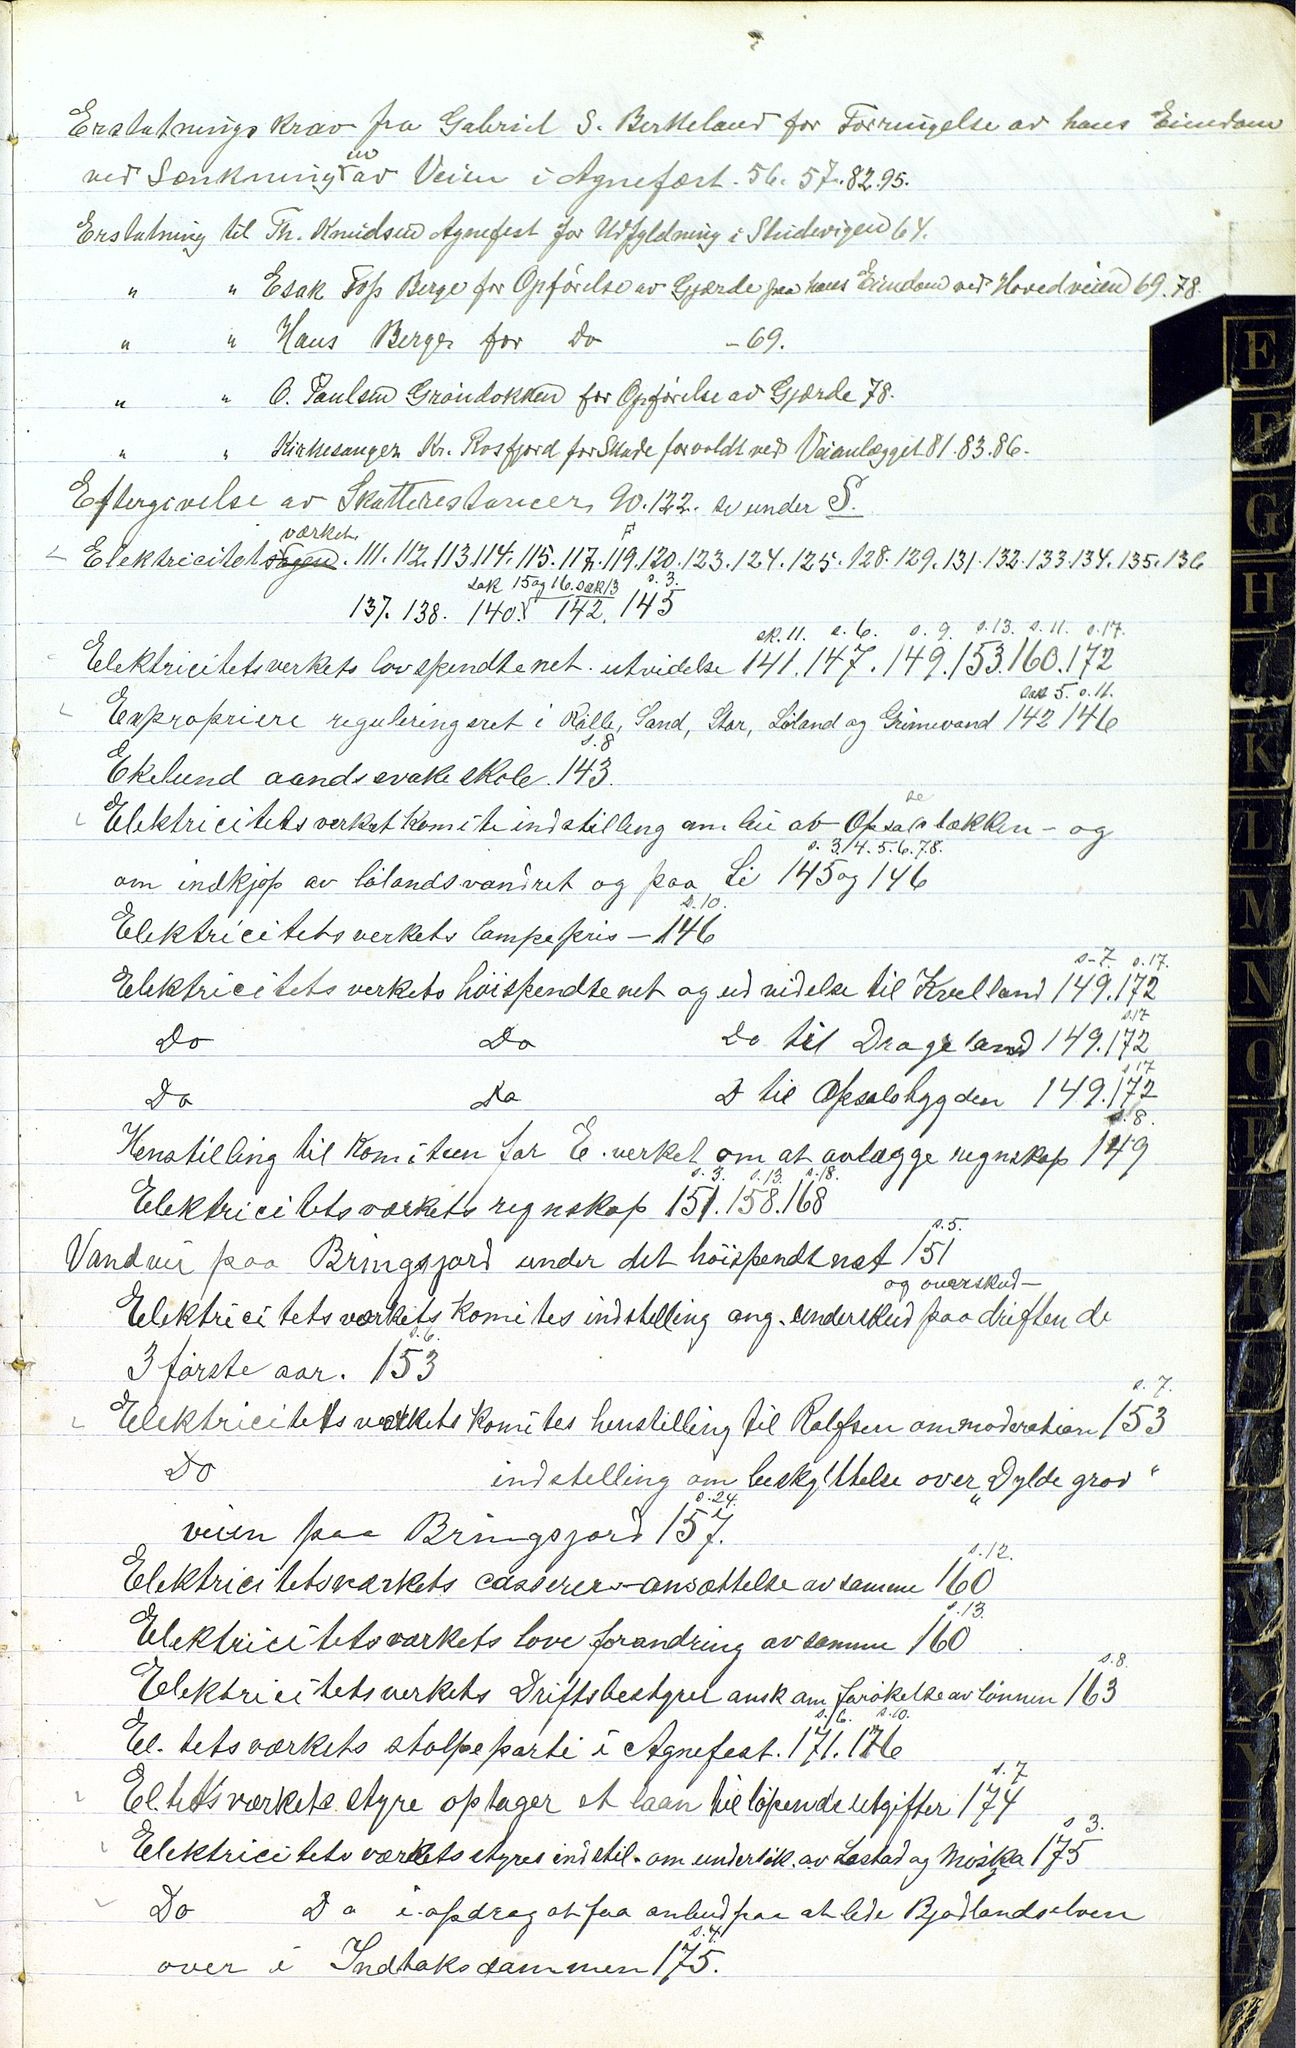 Erstatningskrav fra Gabriel S. Berkeland for Forringelse av hans Eiendom
ved Senkning av Veien i Agnefest. 56. 57. 82. 95.
Erstatning til Th. Knudsen Agnefest for Udfyldning i Studevigen 64.
" " Esak Tobs Berge for Opførelse av Gjærde paa hans Eiendom ved Hovedveien 69. 78.
" " Hans Berge for Do - 69.
" " O. Paulsen Grøndokken for Opførelse av Gjærde 78.
" " Kirkesanger Kr. Rosfjord for Skade forvoldt ved Veianlægget 81. 83. 86.
Eftergivelse av Skatterestancer 90. 122. se under S.
værket
Elektricitetssagen. 111. 112. 113. 114. 115. 117. 119. 120. 123. 124. 125. 128. 129. 131. 132. 133. 134. 135. 136
sak 15 og 16. sak 13 s. 3.
137. 138. 140. 142. 145
sk. 11. s. 6. s. 9. s. 13. s. 11. s. 17.
Elektricitetsverkets lavspendtenet. utvidelse 141. 147. 149. 153. 160. 172
sak 5. s. 11.
Expropriere reguleringsret i Kalle, Sand, Stor, Løland og Grimevand 142 146
s. 8
Ekelund aandssvake skole. 143.
Elektricitetsverket komite indstilling om lei av Opsalsløkken - og
s. 3. 4. 5. 6. 7. 8.
om indkjøp av Lølandsvandret og paa Li 145 og 146
s. 10.
Elektricitetsverkets lampepris - 146
s. 7. s. 17.
Elektricitetsverkets høispendtenet og udvidelse til Kvelland 149. 172
s. 17
Do Do Do til Drageland 149. 172
s. 17
Do Do D til Opsalsbygden 149. 172
s. 8.
Henstilling til Komiteen for E. verket om at avlægge regnskap 149
s. 3. s. 13. s. 18.
Elektricitetsværkets regnskap 151. 158. 168
s. 5.
Vandvei paa Bringsjord under det høispendt net 151
og overskud -
Elektricitetsværkets komites indstilling ang. underskud paa driften de
s. 6.
3 første aar. 153
s. 7.
Elektricitetsverkets komites henstilling til Rolfsen om moderation 153
Do indstilling om beskyttelse over "Dylde grov"
s. 24.
veien paa Bringsjord 157.
s. 12.
Elektricitetsværkets casserer - ansættelse av samme 160
s. 13.
Elektricitetsværkets love forandring av samme 160
s. 8.
Elektricitetsverkets Driftsbestyrer ansk om forøkelse av lønnen 163
s. 6. s. 10.
El. tetsværkets stolpeparti i Agnefest. 171. 176
s. 7
El. tetsværkets styre optager et laan til løpende utgifter 174
s. 3.
Elektricitetsværkets styres indstil. om undersøk. av Lastad og 175
Do Do i opdrag at faa anbud paa at lede Bjodlandselven
s. 4.
over i Indtaksdammen 175.
E
F
G
H
J
K
L
M
N
O
P
Q
R
S